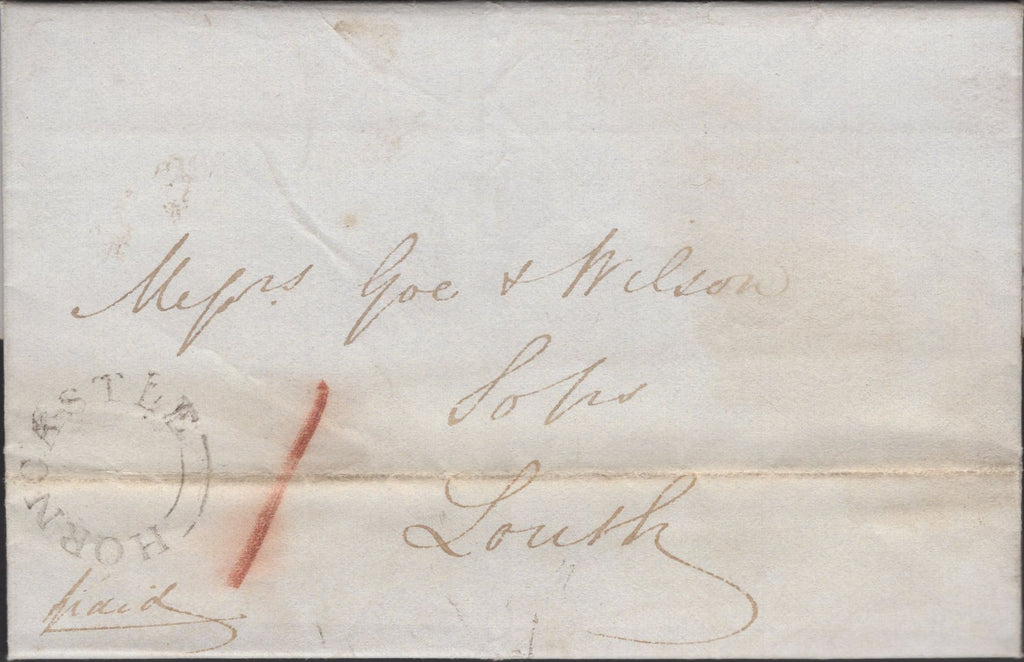 Messrs Goe & Wilson
Solrs
Louth
HORNCASTLE
paid